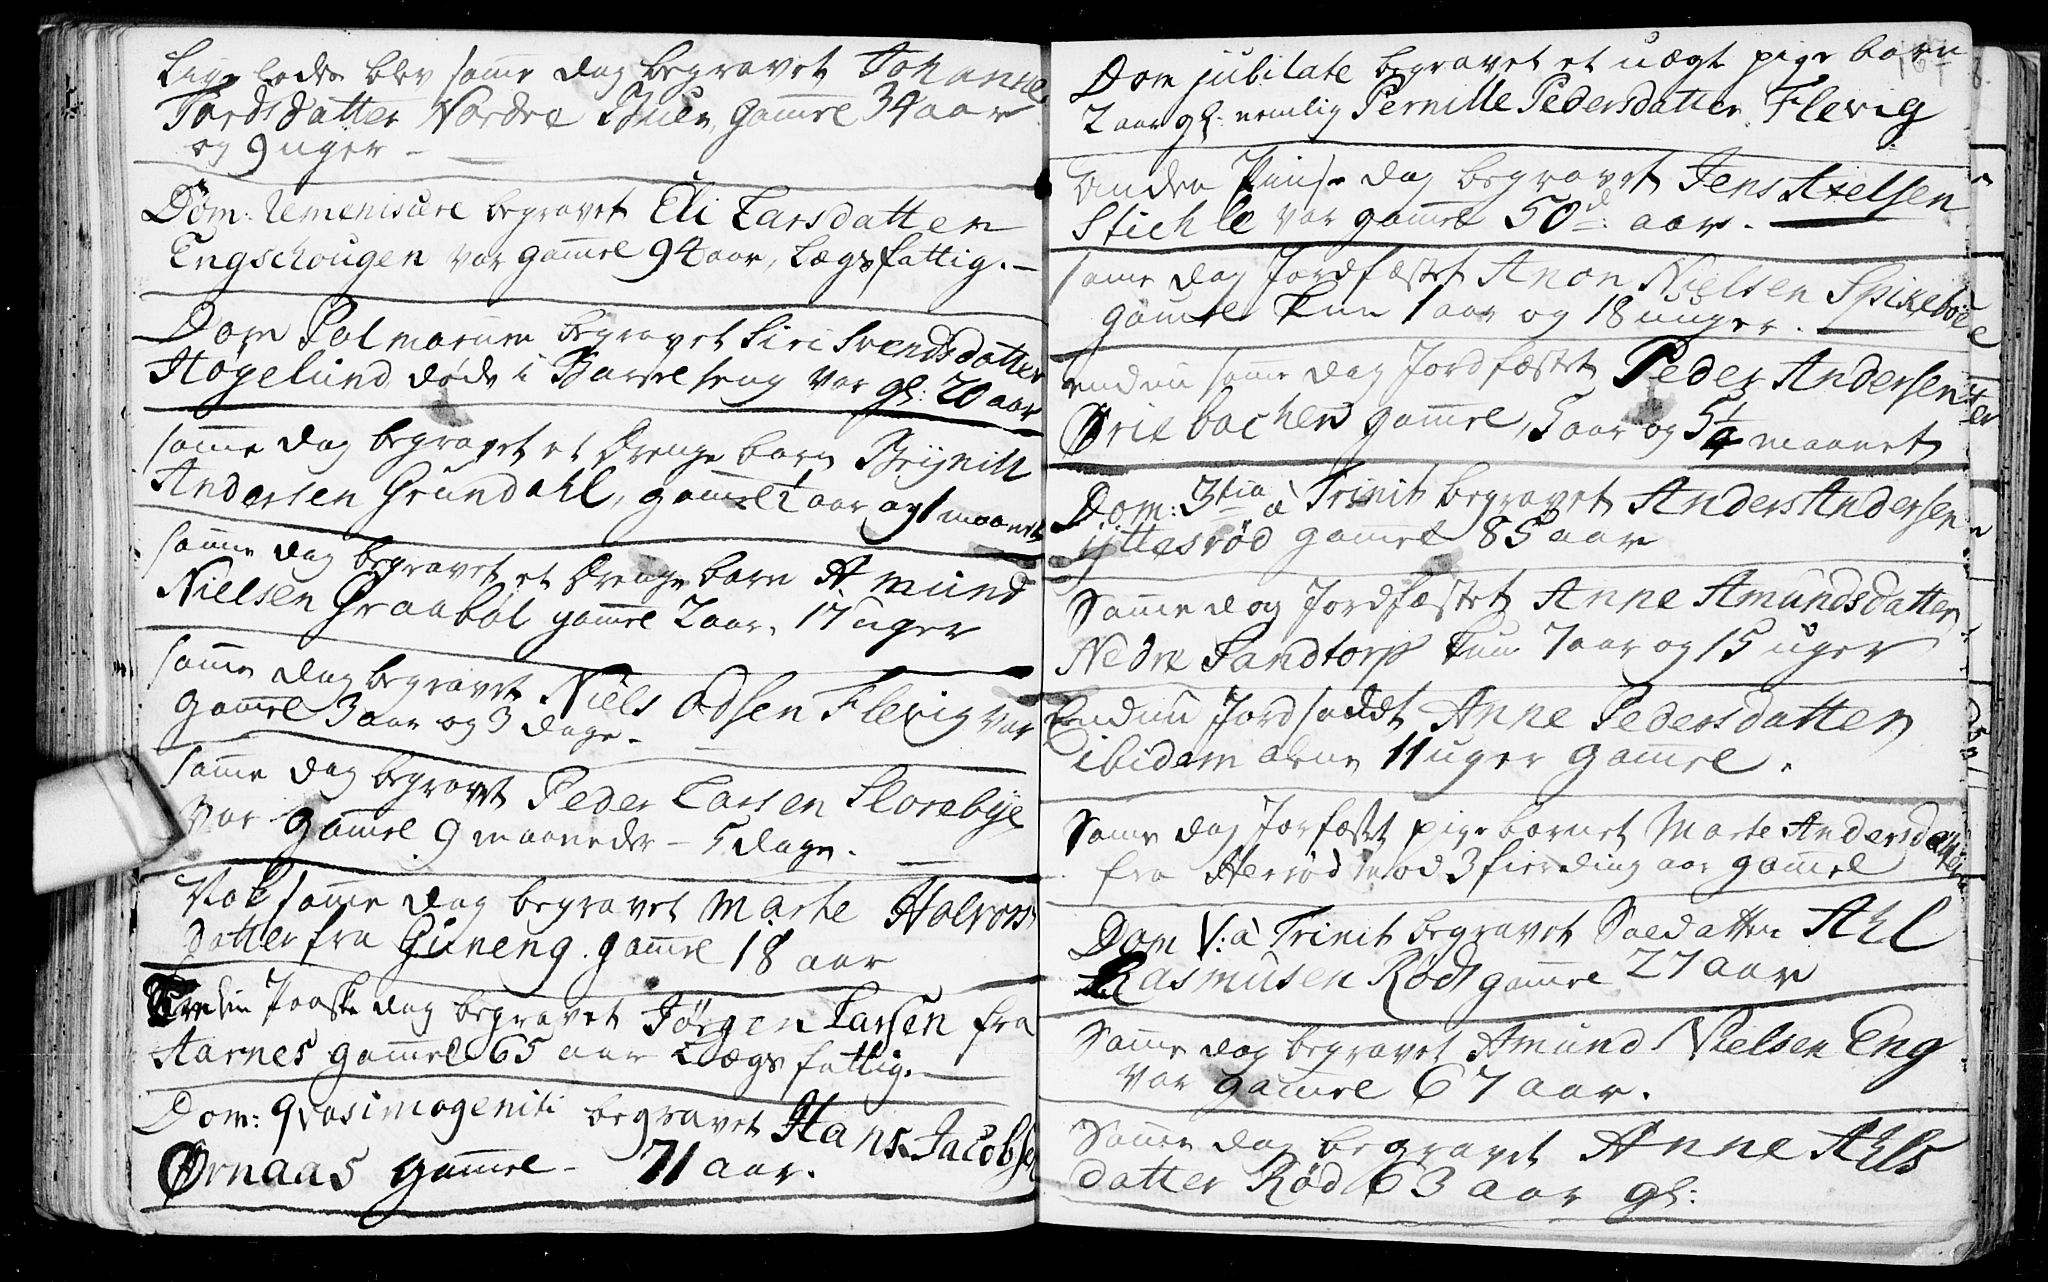 Lige leedes blev samme dag begravet Johanne
Tordsdatter Nordre gamel 34 aar
og 9 uger -
Dom: Remeniscere begravet Eli Larsdatter
Engschougen var gamel 94 aar, Lægsfattig. -
Dom Palmarum begravet Siri Svendsdatter
Høgelund døde i Barsel seng var gl: 20 aar
samme dag begravet et drenge barn Brÿnild
Andersen Grundahl, gamel 1 aar og 1 maanet
samme dag begravet et drenge barn Amund
Nielsen Graabøl gamel 2 aar, 17 uger
samme dag begravet Niels Odsen Flevig var
gamel 3 aar og 3 dage.
samme dag begravet Peder Larsen Slorebÿe
var gamel 9 maaneder - 5 dage.
Nok samme dag begravet Marte Halvors
datter fra Guneng. gamel 18 aar
Paaske dag begravet Jørgen Larsen fra
Aarnes gamel 65 aar Lægsfattig. -
Dom: qvasimogeniti begravet Hans Jacobsen
Ørnaas gamel - 71 aar.
167
Dom jubilate begravet et uægt pige barn
2 aar gl: nemlig Pernille Pedersdatter Flevig
Anden Pinse dag begravet Jens Axelsen
Stichle var gamel 50 aar. -
same dag Jordfæstet Anon Nielsen Spikeböle
gamel kun 1 aar og 18 uuger.
endnu same dag Jordfæstet Peder Andersen
Øriebachen gamel, 5 aar og 5 1/4 maanet
Dom: 3tia à Trinit begravet Anders Andersen
ÿttesrød gamel 85 aar
Samme dag Jordfæstet Anne Amundsdatter
Nedre Sandtorp kun 7 aar og 15 uger
Endnu Jordsaddt Anne Pedersdatter
ibidem alene 11 uger gamel.
Same dag Jorfæstet pige barnet Marte Andersdatter
fra Herrød mod 3 fierding aar gamel
Dom V: à Trinit begravet Soldatten Ahl
Rasmusen Røds gamel 27 aar
Samme dag begravet Amund Nielsen Eng
var gamel 67 aar.
Samme dag begravet Anne Ahls
datter Rød 63 aar gl: